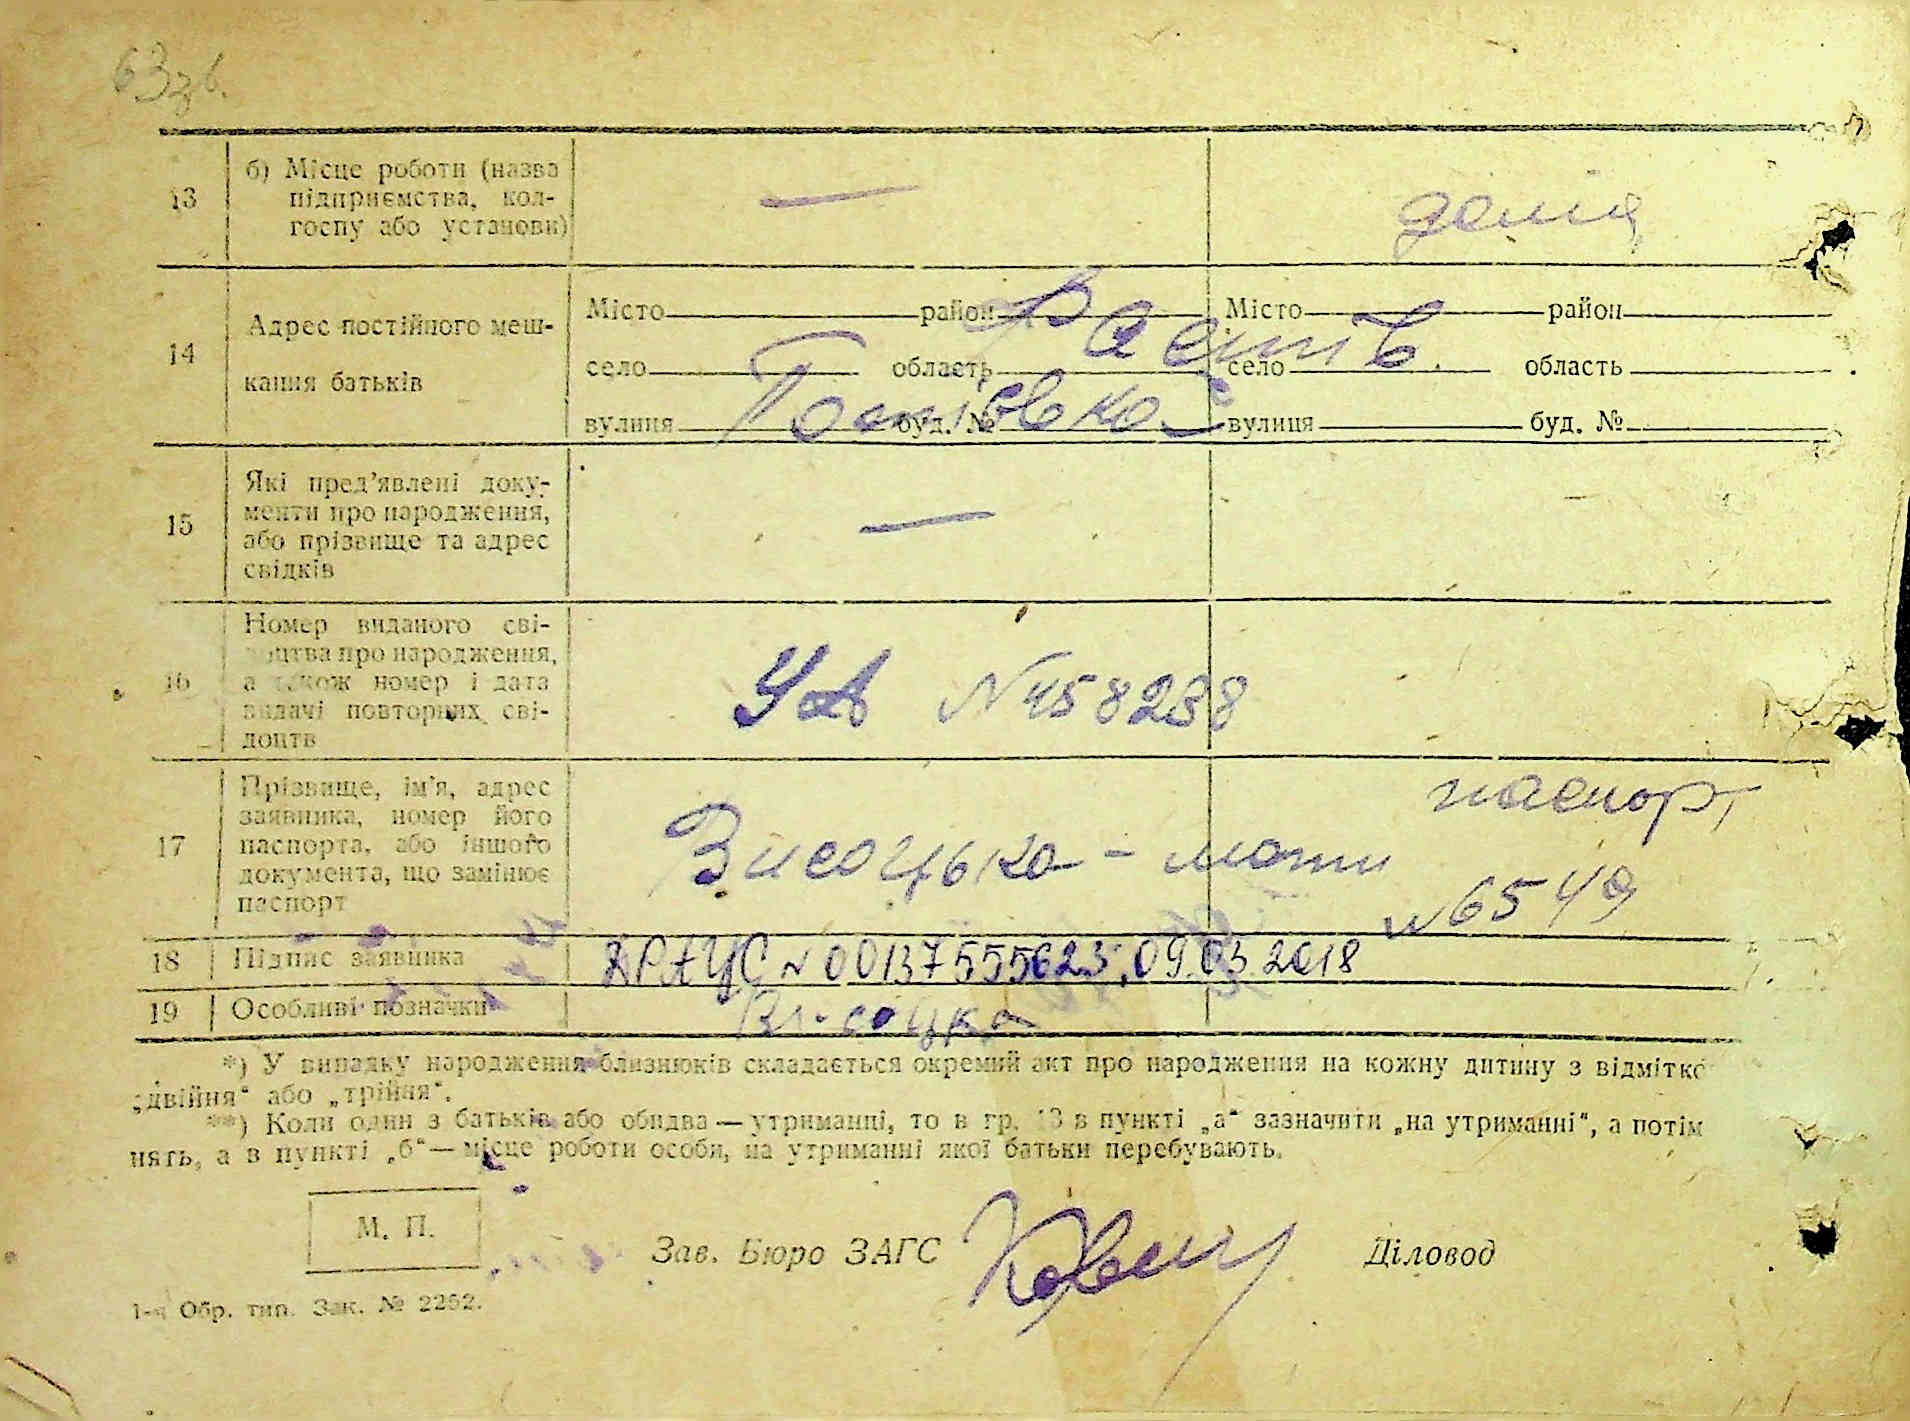 63зв.
13
б) Місце роботи (назва
підприємства, кол-
госпу або установи)
—
дома
14
Адрес постійного меш-
кання батьків
Місто район
село область
вулиця буд. №
Місто район
село область
вулиця буд. №
15
Які пред’явлені доку-
менти про народження,
або прізвище та адрес
свідків
—
16
Номер виданого сві-
доцтва про народження,
а також номер і дата
видачі повторних сві-
доцтв
УА № 458238
17
Прізвище, ім’я, адрес
заявника, номер його
паспорта, або іншого
документа, що замінює
паспорт
Висоцька - мати
паспорт
№ 6549
18
Підпис заявника
ДРАЦС № 00137555623, 09.03.2018
19
Особливі позначки
Висоцка
*) У випадку народження близнюків складається окремий акт про народження на кожну дитину з відмітко
„двійня“ або „трійня“.
**) Коли один з батьків або обидва — утриманці, то в гр. 13 в пункті „а“ зазначити „на утриманні“, а потім
нять, а в пункті „б“ — місце роботи особи, на утриманні якої батьки перебувають.
М. П.
Зав. Бюро ЗАГС
Діловод
1-а Обр. тип. Зак. № 2252.